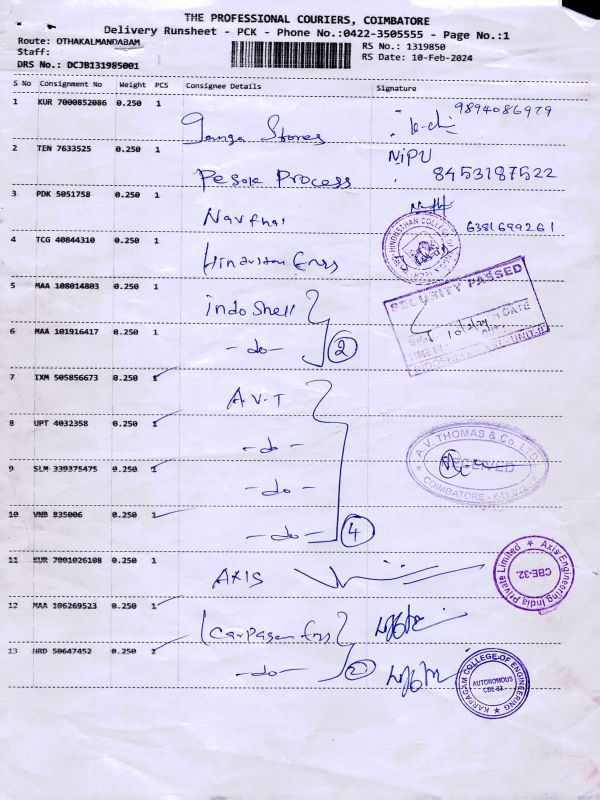 THE PROFESSIONAL COURIERS, COIMBATORE
Delivery Runsheet - PCK - Phone No.:0422-3505555 - Page No.:1
Route: OTHAKALMANDABAM
Staff:
DRS No.: DCJB131985001
RS No.: 1319850
RS Date: 10-Feb-2024
S No Consignment No Weight PCS Consignee Details Signature
1 KUR 7000852086 0.250 1 Ganga Stores 9894086979
2 TEN 7633525 0.250 1 Pesole Process NiPU 8453187522
3 PDK 5051758 0.250 1 Navbhai 6381699261
4 TCG 40844310 0.250 1 Hindustan Engg
HINDUSTHAN COLLEGE OF
5 MAA 108014803 0.250 1 indo Shell
SECURITY PASSED
SIGN DATE
10/2/24
TIME IN
UNIT-II
6 MAA 101916417 0.250 1 -do- 2
7 IXM 505856673 0.250 1 A.V.T
8 UPT 4032358 0.250 1 -do-
A.V. THOMAS & Co. LTD
RECEIVED
COIMBATORE - 641
9 SLM 339375475 0.250 1 -do-
10 VNB 835006 0.250 1 -do- 4
11 KUR 7001026108 0.250 1 AXIS
Axis Engineering India Private Limited
CBE-32.
12 MAA 106269523 0.250 1 Karpagam Engg
13 HRD 50647452 0.250 1 -do- 2
KARPAGAM COLLEGE OF ENGINEERING
AUTONOMOUS
CBE-32